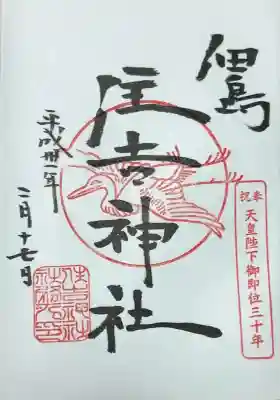 佃島
奉祝
天皇陛下御即位三十年
住吉神社
平成卅一年
二月十七日